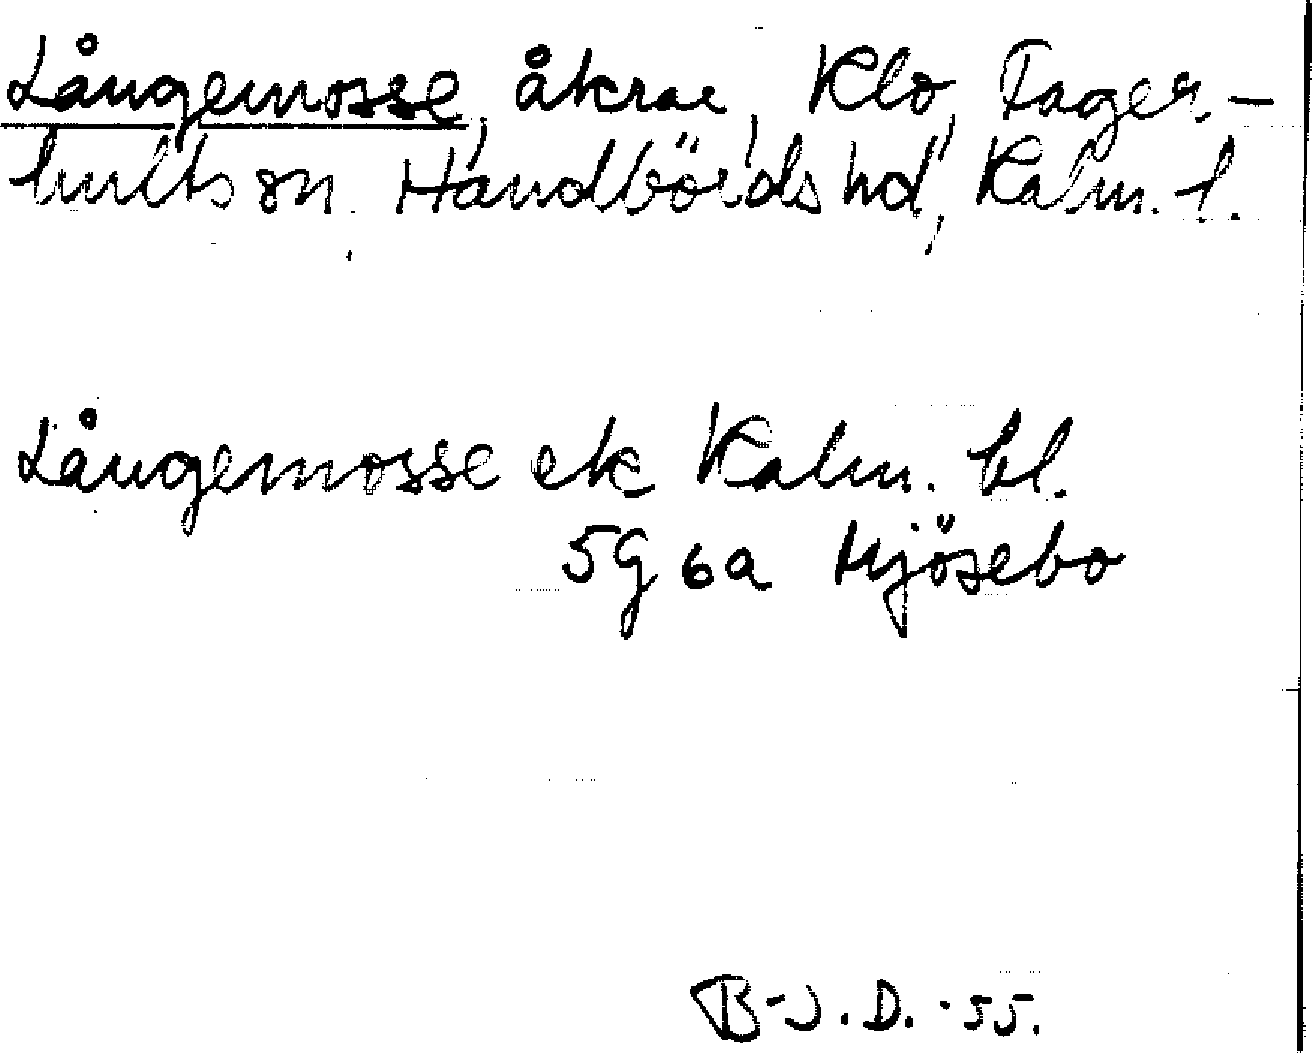 Långemosse, åkrar, Klo, Fager-
hults sn, Handbörds hd, Kalm. l.
Långemosse ek Kalm. bl.
5G 6a Mjösebo
B-J.D. -55.